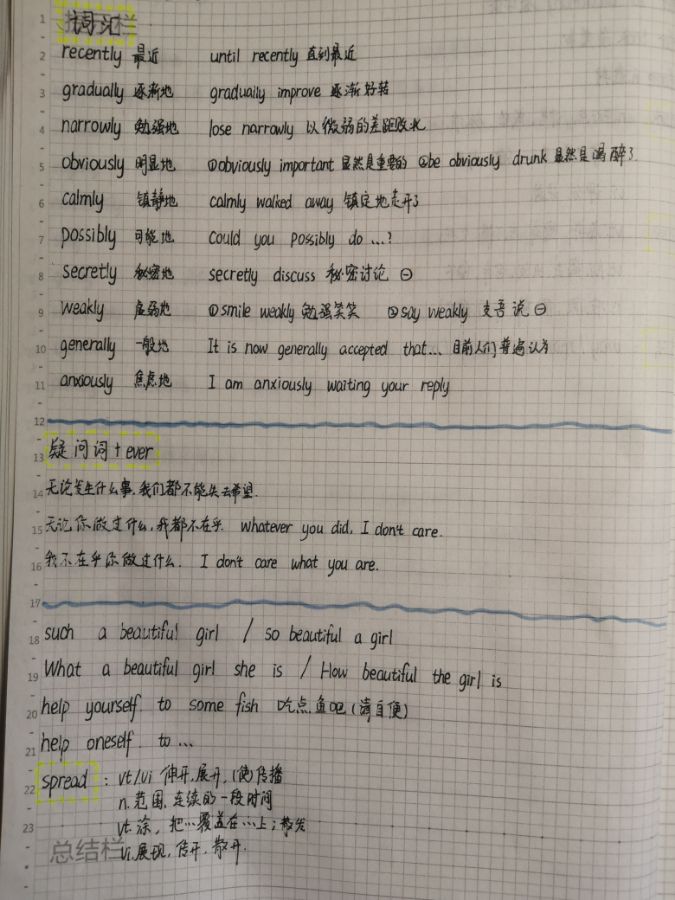 1 词汇
2 recently 最近 until recently 直到最近
3 gradually 逐渐地 gradually improve 逐渐好转
4 narrowly 勉强地 lose narrowly 以微弱的差距败北
5 obviously 明显地 ①obviously important 显然是重要的 ②be obviously drunk 显然是喝醉了
6 calmly 镇静地 calmly walked away 镇定地走开了
7 possibly 可能地 Could you possibly do ...?
8 secretly 秘密地 secretly discuss 秘密讨论
9 weakly 虚弱地 ①smile weakly 勉强笑笑 ②say weakly 支吾说
10 generally 一般地 It is now generally accepted that... 目前人们普遍认为
11 anxiously 焦虑地 I am anxiously waiting your reply
12
13 疑问词 + ever
14 无论发生什么事,我们都不能失去希望.
15 无论你做过什么,我都不在乎. whatever you did, I don't care.
16 我不在乎你做过什么. I don't care what you are.
17
18 such a beautiful girl / so beautiful a girl
19 What a beautiful girl she is / How beautiful the girl is
20 help yourself to some fish 吃点鱼吧(请自便)
21 help oneself to ...
22 spread : vt/vi 伸开,展开,(使)传播
n. 范围,连续的一段时间
23 vt. 涂, 把…覆盖在…上;散发
总结栏 vi.展现,传开,散开.